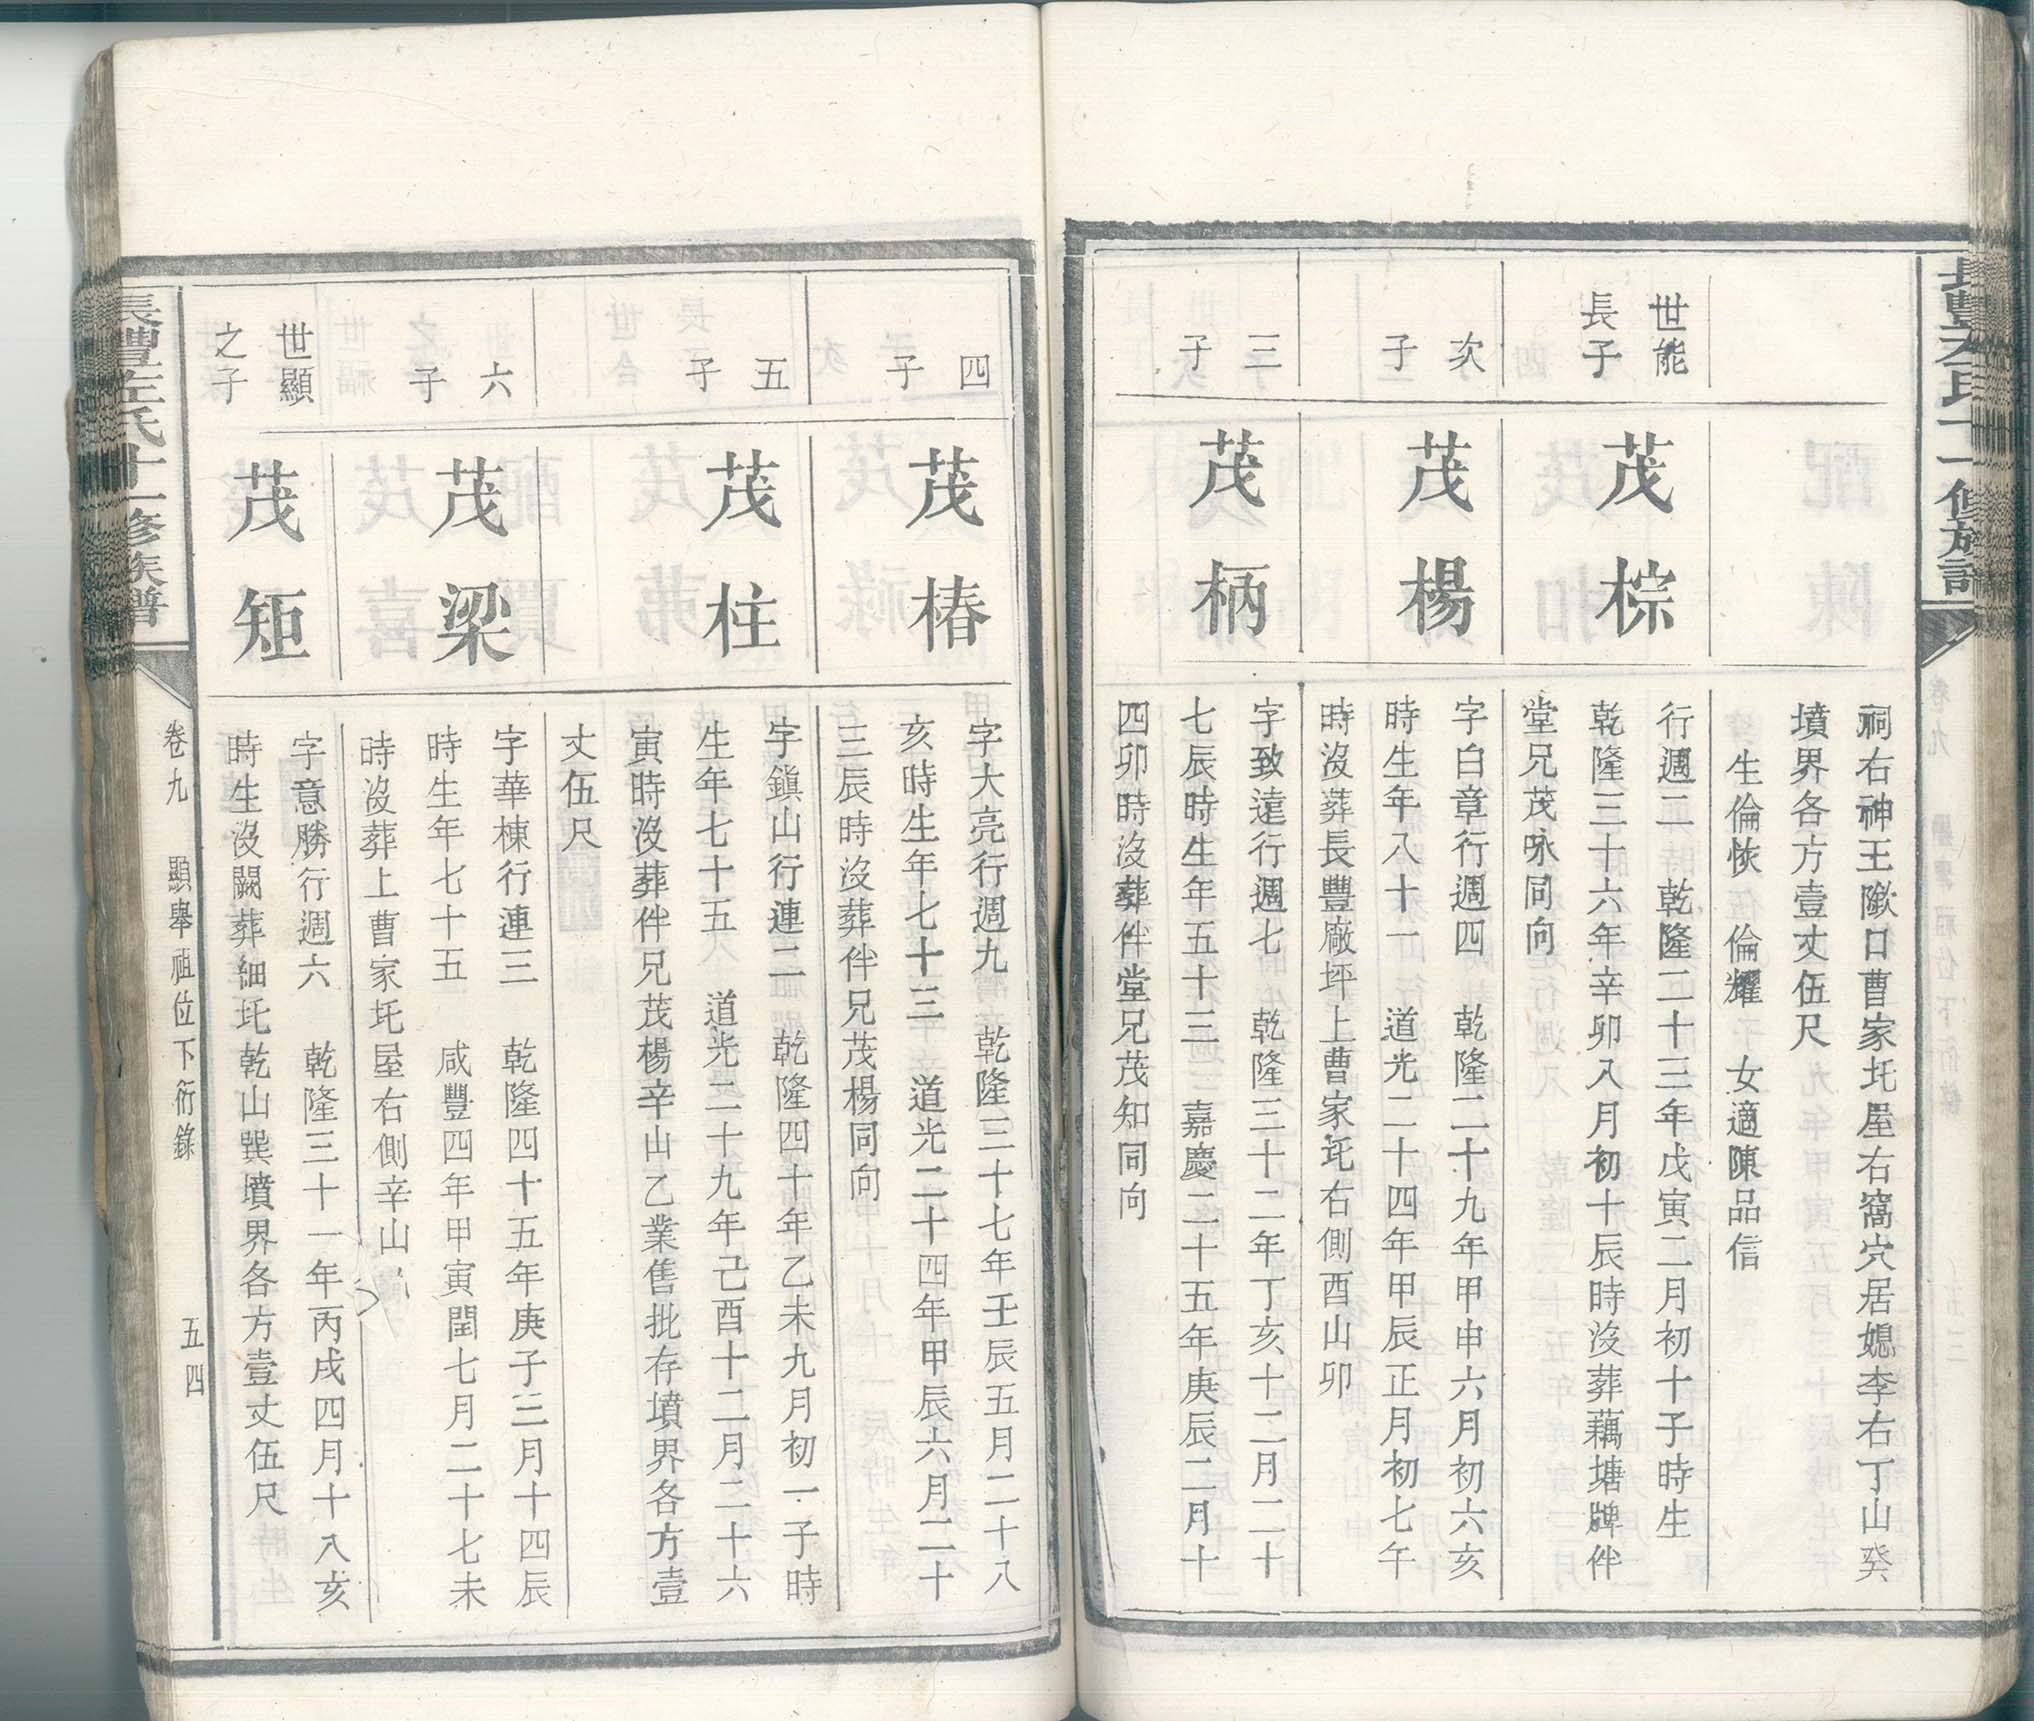 長豐左氏十一修族譜
祠右神王隞口曹家圫屋右窩穴居媳李右丁山癸
墳界各方壹丈伍尺
生倫恢 倫耀 女適陳品信
世能
長子
茂棕
行週二 乾隆二十三年戊寅二月初十子時生
乾隆三十六年辛卯八月初十辰時沒葬藕塘牌伴
堂兄茂咏同向
次
子
茂楊
字白章行週四 乾隆二十九年甲申六月初六亥
時生年八十一 道光二十四年甲辰正月初七午
時沒葬長豐廠坪上曹家圫右側酉山卯
三
子
茂柄
字致達行週七 乾隆三十二年丁亥十二月二十
七辰時生年五十三 嘉慶二十五年庚辰二月十
四卯時沒葬伴堂兄茂知同向
四
子
茂椿
字大亮行週九 乾隆三十七年壬辰五月二十八
亥時生年七十三 道光二十四年甲辰六月二十
三辰時沒葬伴兄茂楊同向
五
子
茂柱
字鎮山行連二 乾隆四十年乙未九月初一子時
生年七十五 道光二十九年己酉十二月二十六
寅時沒葬伴兄茂楊辛山乙業售批存墳界各方壹
丈伍尺
六
子
茂梁
字華棟行連三 乾隆四十五年庚子三月十四辰
時生年七十五 咸豐四年甲寅閏七月二十七未
時沒葬上曹家圫屋右側辛山
世顯
之子
茂矩
字意勝行週六 乾隆三十一年丙戌四月十八亥
時生沒闕葬細圫乾山巽墳界各方壹丈伍尺
長豐左氏十一修族譜
卷九 顯舉祖位下衍錄 五四